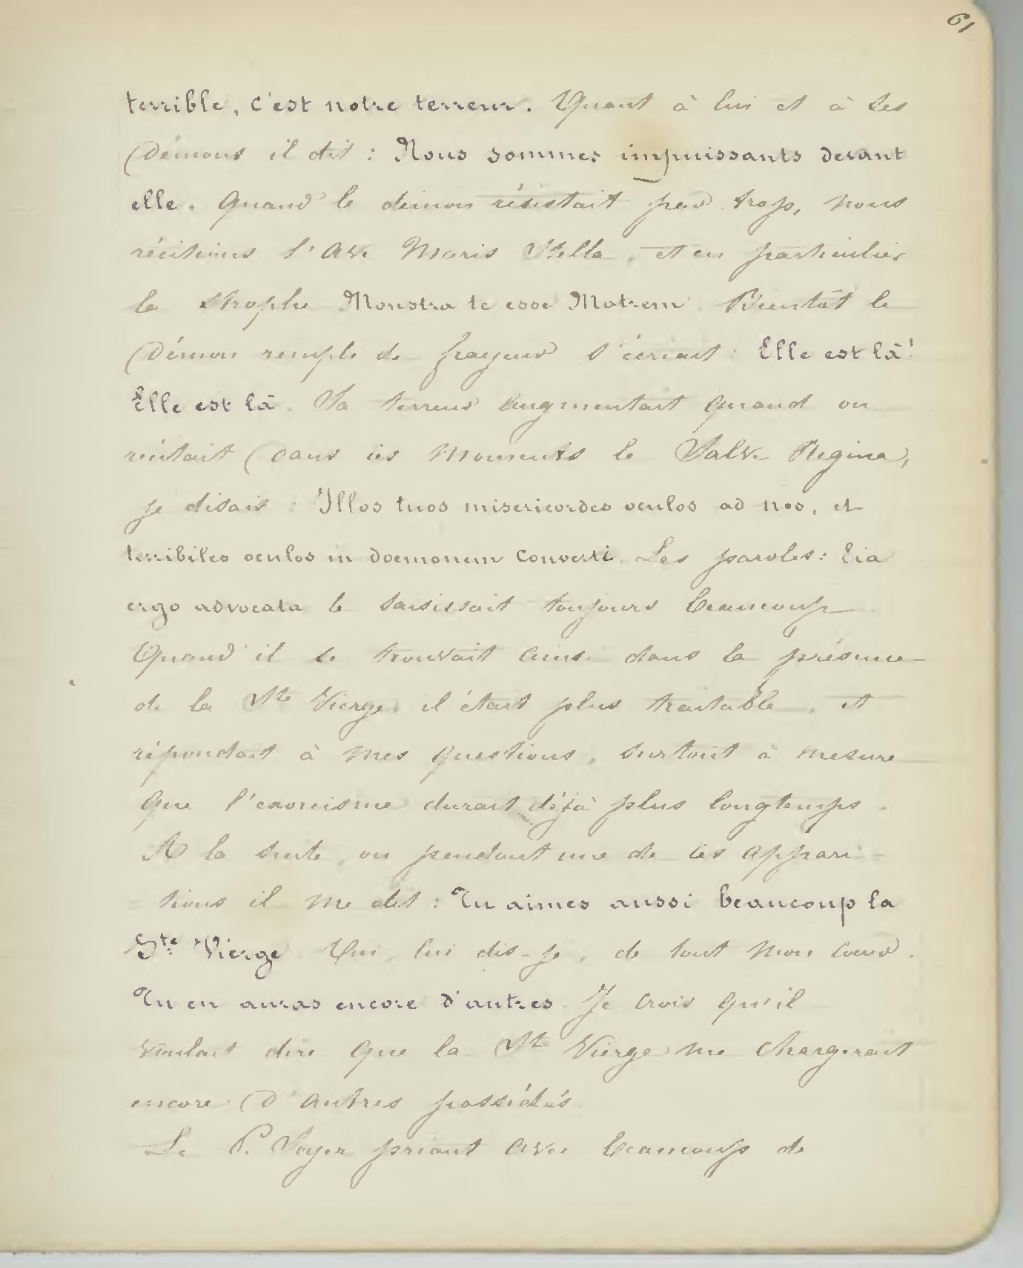 61
terrible, c'est notre terreur. Quant à lui et à ses
Démons il dit : Nous sommes impuissants devant
elle. Quand le démon résistait par trop, nous
récitions l'Ave Maris Stella, et en particulier
la strophe Monstra te esse Matrem. Bientôt le
Démon rempli de frayeur s'écriait : Elle est là !
Elle est là. Sa terreur augmentait quand on
récitait Dans ces moments le Salve Regina,
je disais : Illos tuos misericordes oculos ad nos, et
terribiles oculos in doemonem converti. Les paroles : Eia
ergo advocata le saisissait toujours beaucoup
Quand il se trouvait ainsi dans la présence
de la Ste Vierge, il était plus traitable, et
répondait à mes questions, surtout à mesure
que l'exorcisme durait déjà plus longtemps.
A la suite, ou pendant une de ces appari-
tions il me dit : Tu aimes aussi beaucoup la
Ste Vierge. Oui, lui dis-je, de tout mon coeur.
Tu en auras encore d'autres. Je crois qu'il
voulait dire que la Ste Vierge me chargerait
encore D'autres possédés.
Le P. priant avec beaucoup de